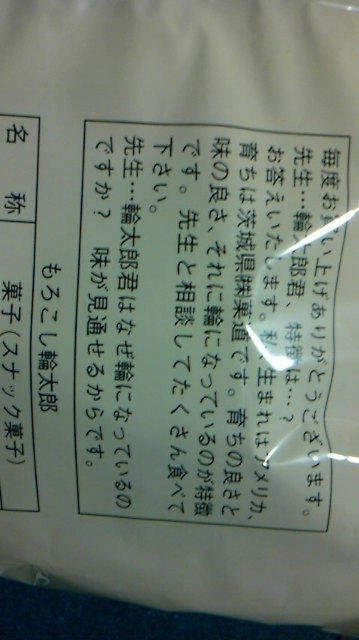 毎度お買い上げありがとうございます。
先生…輪太郎君、特徴は…?
お答えいたします。私、生まれはアメリカ、
育ちは茨城県㈱菓道です。育ちの良さと
味の良さ、それに輪になっているのが特徴
です。先生と相談してたくさん食べて
下さい。
先生…輪太郎君はなぜ輪になっているの
ですか? 味が見通せるからです。
もろこし輪太郎
名 称 菓子(スナック菓子)